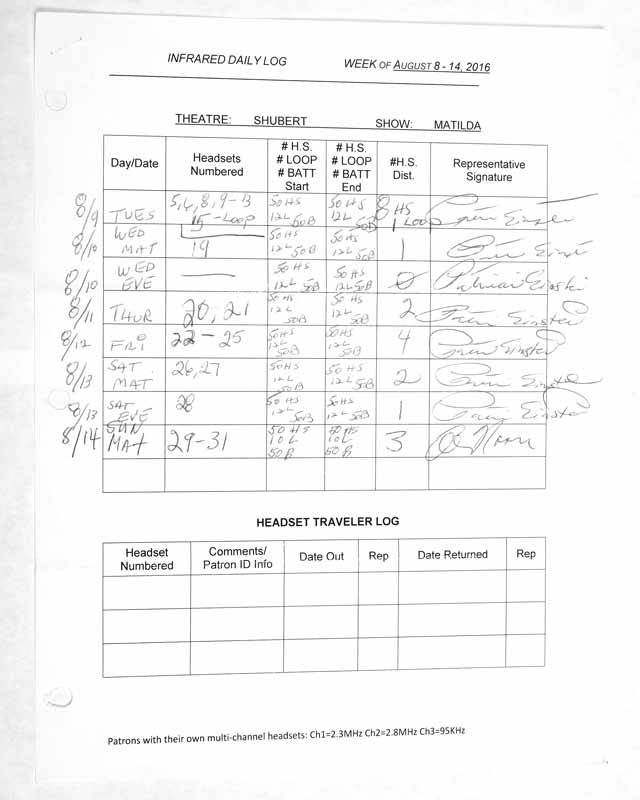 INFRARED DAILY LOG WEEK OF AUGUST 8 - 14, 2016
THEATRE: SHUBERT SHOW: MATILDA
Day/Date Headsets Numbered # H.S. # LOOP # BATT Start # H.S. # LOOP # BATT End #H.S. Dist. Representative Signature
8/9 TUES 5,6,8,9-13 15-LOOP 50HS 12L 50B 50HS 12L 50B 8 HS 1 LOOP
8/10 WED MAT 19 50HS 12L 50B 50HS 12L 50B 1
8/10 WED EVE — 50 HS 12L 50B 50 HS 12L 50B 0
8/11 THUR 20, 21 50 HS 12L 50B 50 HS 12L 50B 2
8/12 FRI 22 - 25 50HS 12L 50B 50HS 12L 50B 4
8/13 SAT MAT 26,27 50HS 12L 50B 50HS 12L 50B 2
8/13 SAT EVE 28 50HS 12L 50B 50HS 12L 50B 1
8/14 SUN MAT 29-31 50 HS 10L 50B 50 HS 10L 50B 3
HEADSET TRAVELER LOG
Headset Numbered Comments/ Patron ID Info Date Out Rep Date Returned Rep
Patrons with their own multi-channel headsets: Ch1=2.3MHz Ch2=2.8MHz Ch3=95KHz